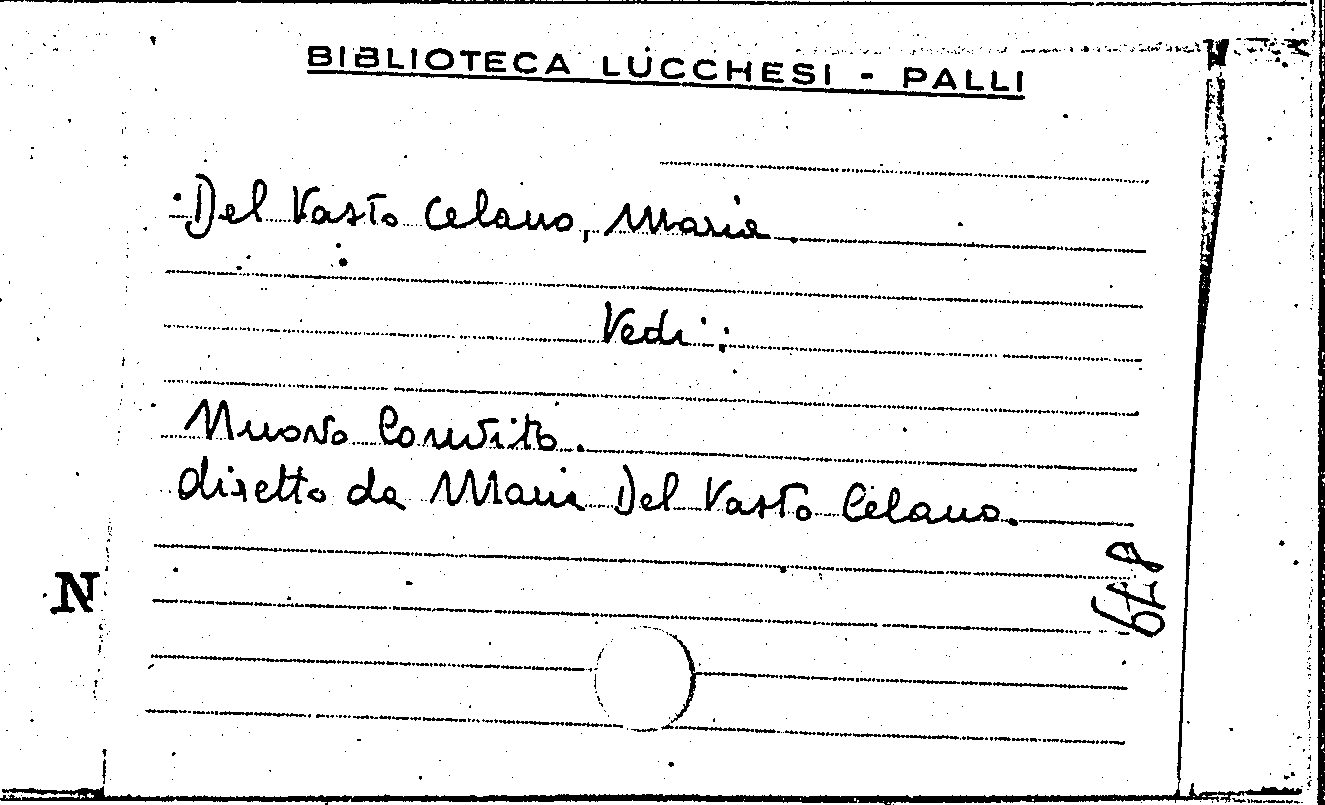 BIBLIOTECA LUCCHESI - PALLI
Del Vasto Celano, Maria.
Vedi:
Nuovo Convito.
diretto da Maria Del Vasto Celano.
N